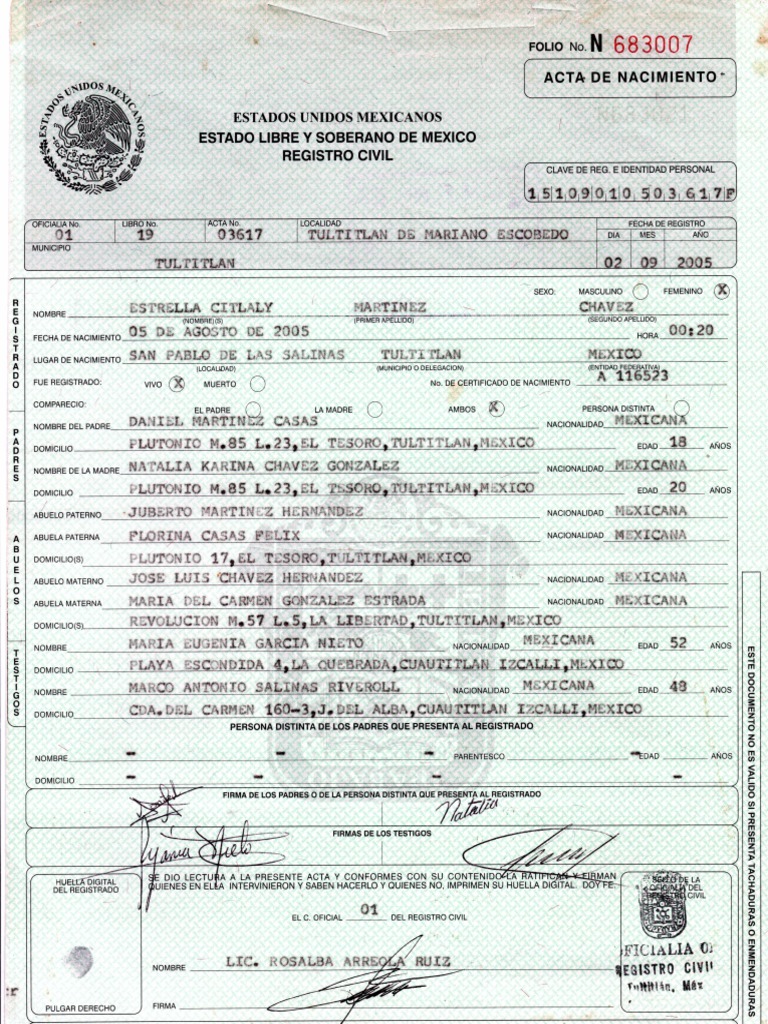 FOLIO No. N 683007
ACTA DE NACIMIENTO
ESTADOS UNIDOS MEXICANOS
ESTADOS UNIDOS MEXICANOS
ESTADO LIBRE Y SOBERANO DE MEXICO
REGISTRO CIVIL
CLAVE DE REG. E IDENTIDAD PERSONAL
151090105 03617F
OFICIALIA No. LIBRO No. ACTA No. LOCALIDAD FECHA DE REGISTRO
01 19 03617 TULTITLAN DE MARIANO ESCOBEDO DIA MES AÑO
MUNICIPIO
TULTITLAN 02 09 2005
REGISTRADO
SEXO: MASCULINO FEMENINO X
NOMBRE ESTRELLA CITLALY MARTINEZ CHAVEZ
(NOMBRE)(S) (PRIMER APELLIDO) (SEGUNDO APELLIDO)
FECHA DE NACIMIENTO 05 DE AGOSTO DE 2005 HORA 00:20
LUGAR DE NACIMIENTO SAN PABLO DE LAS SALINAS TULTITLAN MEXICO
(LOCALIDAD) (MUNICIPIO O DELEGACION) (ENTIDAD FEDERATIVA)
FUE REGISTRADO: VIVO X MUERTO No. DE CERTIFICADO DE NACIMIENTO A 116523
COMPARECIO: EL PADRE LA MADRE AMBOS X PERSONA DISTINTA
PADRES
NOMBRE DEL PADRE DANIEL MARTINEZ CASAS NACIONALIDAD MEXICANA
DOMICILIO PLUTONIO M.85 L.23,EL TESORO,TULTITLAN,MEXICO EDAD 18 AÑOS
NOMBRE DE LA MADRE NATALIA KARINA CHAVEZ GONZALEZ NACIONALIDAD MEXICANA
DOMICILIO PLUTONIO M.85 L.23,EL TESORO,TULTITLAN,MEXICO EDAD 20 AÑOS
ABUELOS
ABUELO PATERNO JUBERTO MARTINEZ HERNANDEZ NACIONALIDAD MEXICANA
ABUELA PATERNA FLORINA CASAS FELIX NACIONALIDAD MEXICANA
DOMICILIO(S) PLUTONIO 17,EL TESORO,TULTITLAN,MEXICO
ABUELO MATERNO JOSE LUIS CHAVEZ HERNANDEZ NACIONALIDAD MEXICANA
ABUELA MATERNA MARIA DEL CARMEN GONZALEZ ESTRADA NACIONALIDAD MEXICANA
DOMICILIO(S) REVOLUCION M.57 L.5,LA LIBERTAD,TULTITLAN,MEXICO
TESTIGOS
NOMBRE MARIA EUGENIA GARCIA NIETO NACIONALIDAD MEXICANA EDAD 52 AÑOS
DOMICILIO PLAYA ESCONDIDA 4,LA QUEBRADA,CUAUTITLAN IZCALLI,MEXICO
NOMBRE MARCO ANTONIO SALINAS RIVEROLL NACIONALIDAD MEXICANA EDAD 48 AÑOS
DOMICILIO CDA.DEL CARMEN 160-3,J.DEL ALBA,CUAUTITLAN IZCALLI,MEXICO
PERSONA DISTINTA DE LOS PADRES QUE PRESENTA AL REGISTRADO
NOMBRE - - - PARENTESCO - EDAD AÑOS
DOMICILIO - - - - -
FIRMA DE LOS PADRES O DE LA PERSONA DISTINTA QUE PRESENTA AL REGISTRADO
Natalia
FIRMAS DE LOS TESTIGOS
HUELLA DIGITAL
DEL REGISTRADO
SE DIO LECTURA A LA PRESENTE ACTA Y CONFORMES CON SU CONTENIDO LA RATIFICAN Y FIRMAN
QUIENES EN ELLA INTERVINIERON Y SABEN HACERLO Y QUIENES NO, IMPRIMEN SU HUELLA DIGITAL. DOY FE.
EL C. OFICIAL 01 DEL REGISTRO CIVIL
NOMBRE LIC. ROSALBA ARREOLA RUIZ
FIRMA
PULGAR DERECHO
SELLO DE LA
OFICIALIA DEL
REGISTRO CIVIL
OFICIALIA 01
REGISTRO CIVIL
Tultitlán, Méx
ESTE DOCUMENTO NO ES VALIDO SI PRESENTA TACHADURAS O ENMENDADURAS